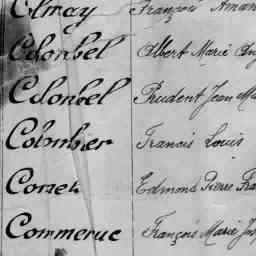 Colmay François Aman
Colombel Albert Marie Ang
Colombel Prudent Jean Ma
Colombier Francis Louis
Comen Edmond Pierre Fra
Commeruc François Marie Jos